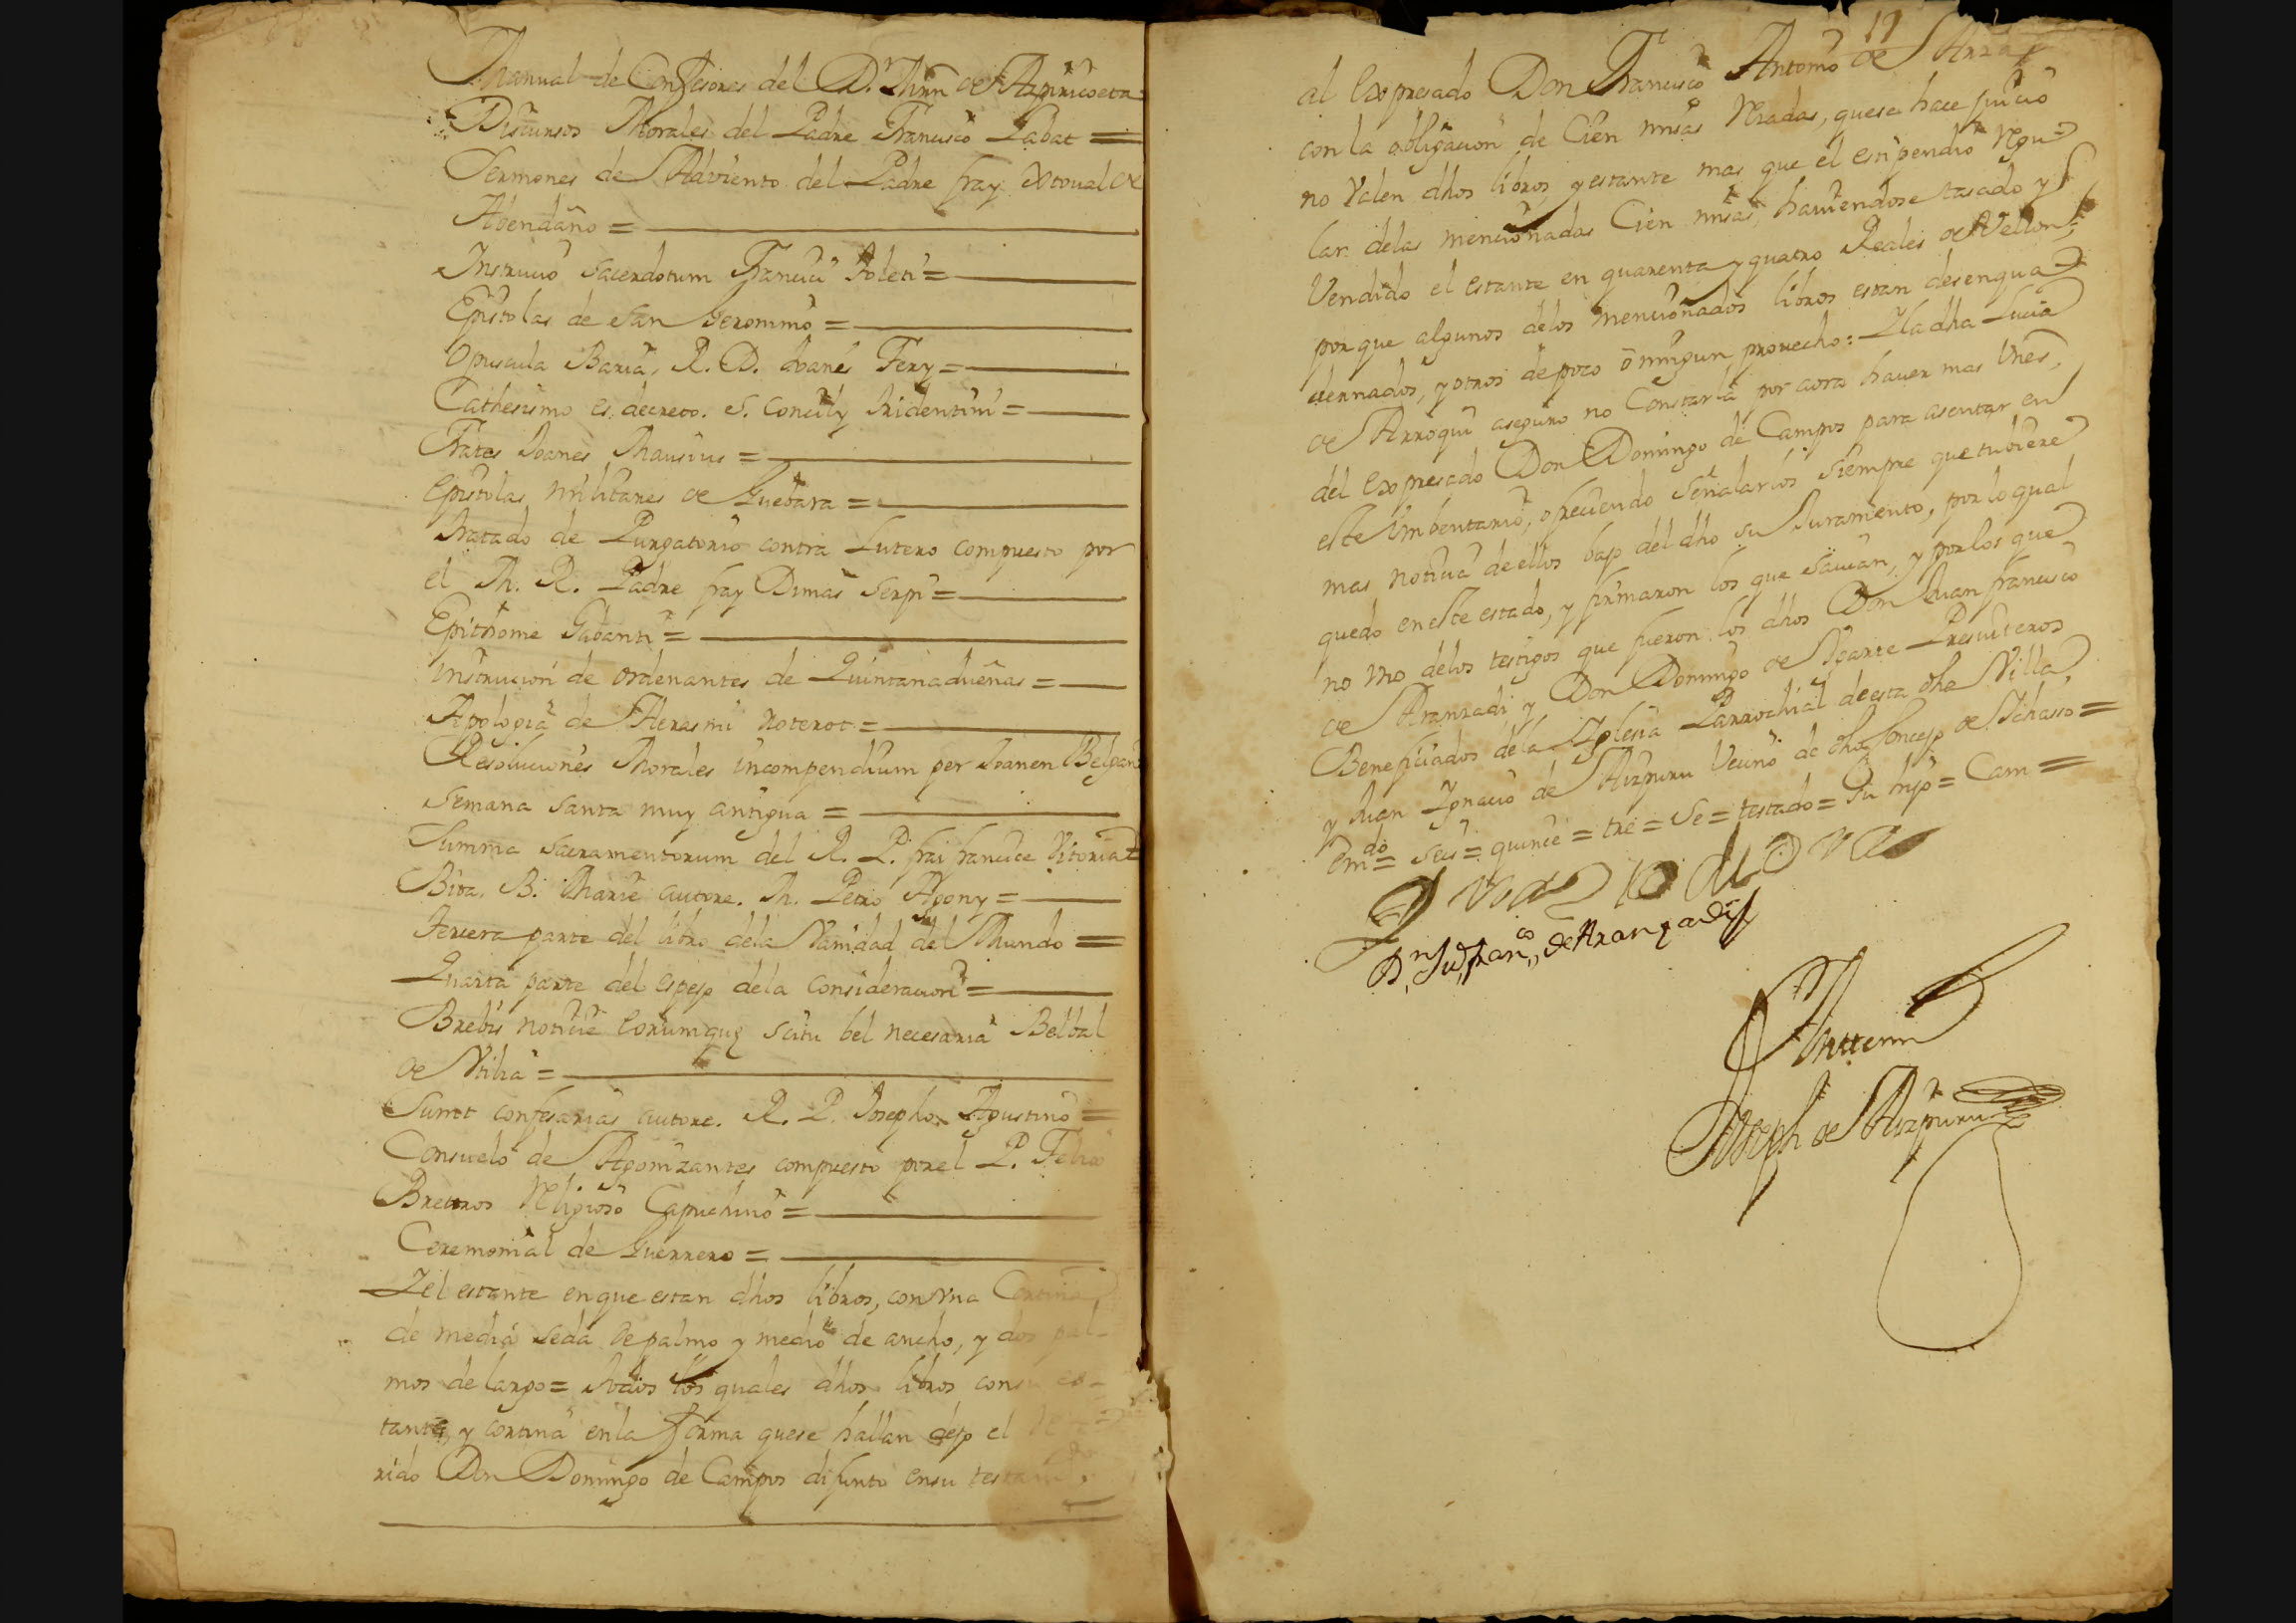 Manual de Confesores del D.r Mrn de Azpiricoeta
Discursos Morales del Padre Francisco Labat =
Sermones de Adviento del Padre fray Xtoual de
Abendaño =
Instrucio sacerdotum Francici Toleti =
Epistolas de San Geronimo =
Opuscula Baria, R. D. Joanes Fery =
Cathesismo es decreto. S. Concily Tridentini =
Frates Joanes Mausius =
Epistolas militares de Guebara =
Tratado de Purgatorio contra Lutero compuesto por
el M. R. Padre fray Dimas Serpi =
Epithome Gabanti =
instrucion de ordenantes de Quintanadueñas =
Apologia de Herasmi Roterot =
Resoluciones Morales in compendium per Joanen Belgan
Semana Santa muy antigua =
Summa sacramentorum del R. P. frai francice Vitoria =
Bita. B. Marie autore. M. Petro Agony =
Tercera parte del libro dela Vanidad del Mundo =
Quarta parte del espejo dela Consideracion =
Brebis noticie Eorumque scitu bel necesaria Belbal
de Vtilia =
Sumt confesarias autore. R. P. Josepho Agustino =
Consuelo de Agonizantes compuesto por el P. Felix
Bretos Religioso Capuchino =
Ceremonial de Guerrero =
Y el estante en que estan dhos libros, con vna Cortina
de media seda de palmo y medio de ancho, y dos pal-
mos de largo = Todos los quales dhos libros con su es-
tante, y cortina en la forma que se hallan dejo el refe-
rido Don Domingo de Campos difunto en su testam.to
19
al expresado Don Francisco Antonio de Arza
con la obligacion de Cien misas Rezadas, que se hace juicio
no valen dhos libros, y estante mas que el estipendio Regu-
lar delas mencionadas Cien misas, haviendose tasado y
Vendido el estante en quarenta y quatro Reales de Vellon;
porque algunos delos mencionados libros estan desenqua-
dernados, y otros de poco ò ningun provecho: Y la dha Lucia
de Arroqui aseguro no Constarla por aora hauer mas vnes,
del expresado Don Domingo de Campos para asentar en
este Imbentario, ofreciendo señalarlos siempre que tubiere
mas noticia de ellos bajo del dho su Juramento, por lo qual
quedo en este estado, y firmaron los que sauian, y por los que
no vno delos testigos que fueron los dhos Don Juan francisco
de Aranzadi, y Don Domingo de Vgarte Presuiteros
Beneficiados dela Yglesia Parrochial de esta dha Villa,
y Juan Ignacio de Aizpuru Vecino de dho Concejo de Ichasso =
Em.do = seis = quince = tre = Se = testado = Su hijo = Cam =
D.n Ju.o Fran.co de Aranzadi
Antemi
Joseph de Aizpuru